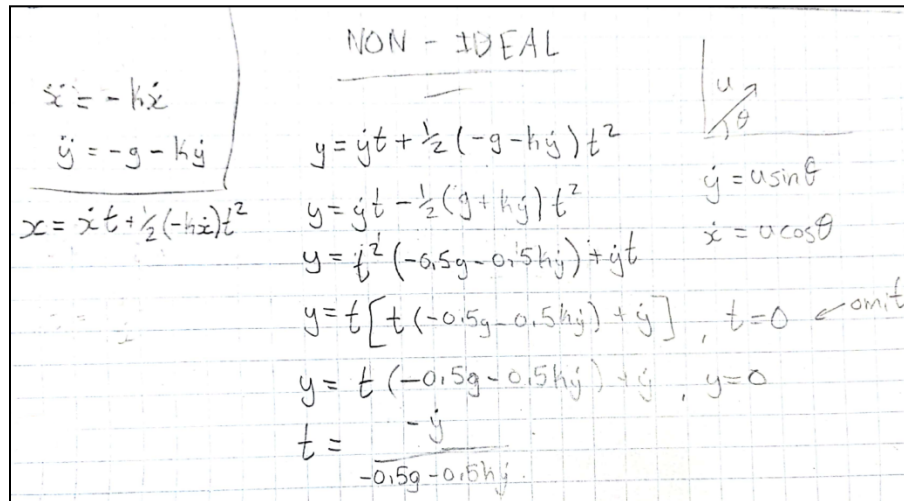 NON - IDEAL
ẍ = -kẋ
ÿ = -g - kẏ
x = ẋt + ½(-kẋ)t²
y = ẏt + ½(-g-kẏ)t²
y = ẏt - ½(g+kẏ)t²
y = t²(-0.5g-0.5kẏ)+ẏt
y = t[t(-0.5g-0.5kẏ)+ẏ], t=0 ← omit
y = t(-0.5g-0.5kẏ)+ẏ, y=0
t = -ẏ / -0.5g-0.5kẏ
u
θ
ẏ = usinθ
ẋ = ucosθ